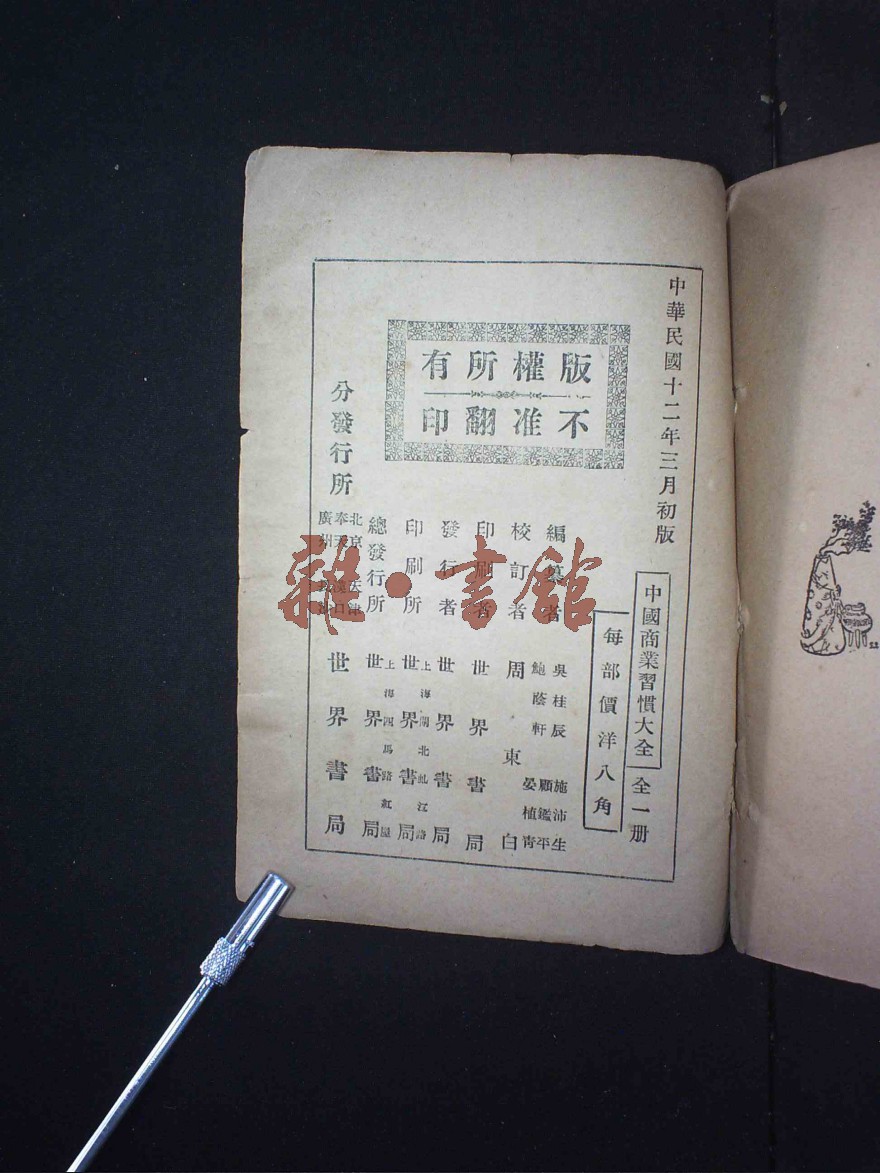 中華民國十二年三月初版
版權所有
不准翻印
中國商業習慣大全 全一册
每部價洋八角
編纂者 吳桂辰 施沛生 鮑蔭軒 顧鑑平 晏植青
校訂者 周東白
印刷者 世界書局
發行者 世界書局
印刷所 上海閘北虬江路 世界書局
總發行所 上海四馬路紅屋 世界書局
分發行所 北京 天津 奉天 漢口 廣州 世界書局
雜·書館